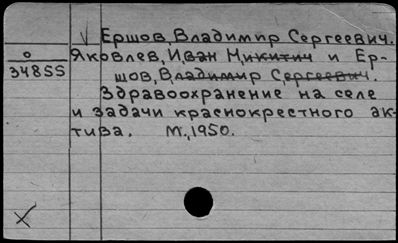 Ершов, Владимир Сергеевич.
о
34855
Яковлев, Иван Никитич и Ер-
шов, Владимир Сергеевич.
Здравоохранение на селе
и задачи краснокрестного ак-
тива. М., 1950.